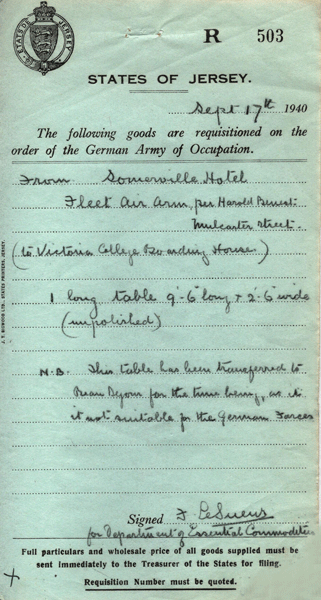 STATES OF JERSEY
R 503
STATES OF JERSEY.
Sept 17th 1940
The following goods are requisitioned on the
order of the German Army of Occupation.
From Somerville Hotel
Fleet Air Arm, per Harold Benest
Mulcaster Street.
(to Victoria College Boarding House)
1 long table 9'-6" long x 2'-6" wide
(unpolished)
N.B. This table has been transferred to
for the time being, as it
is not suitable for the German Forces
Signed F LeSueur
for Department of Essential Commodities
Full particulars and wholesale price of all goods supplied must be
sent immediately to the Treasurer of the States for filing.
Requisition Number must be quoted.
J. T. BIGWOOD LTD., STATES PRINTERS, JERSEY.